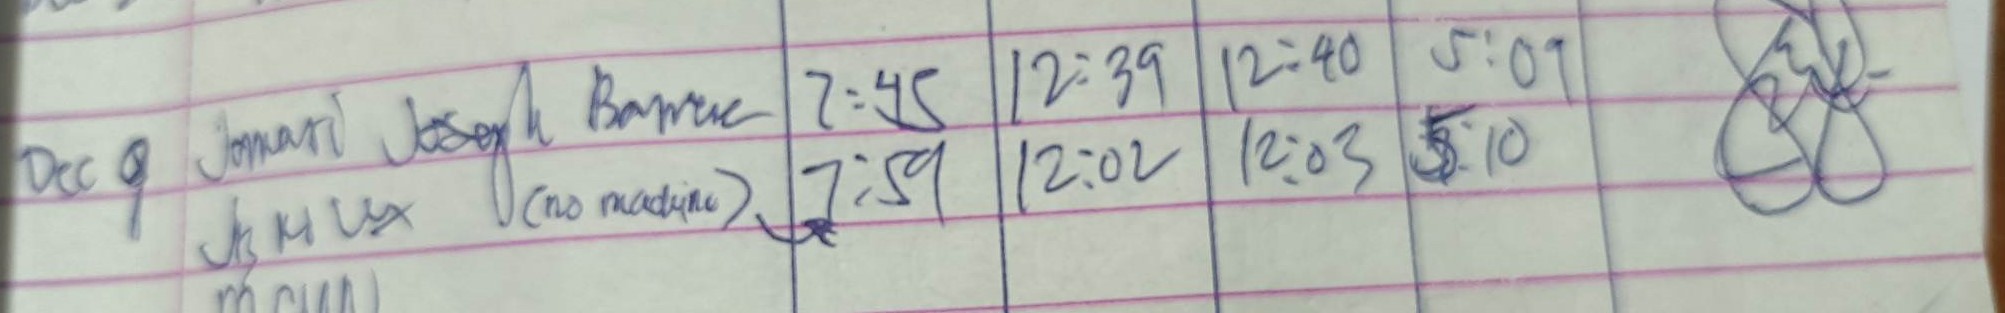 Dec 9 Jomari Joseph 7:45 12:39 12:40 5:09
(no machine) 7:59 12:02 12:03 5:10